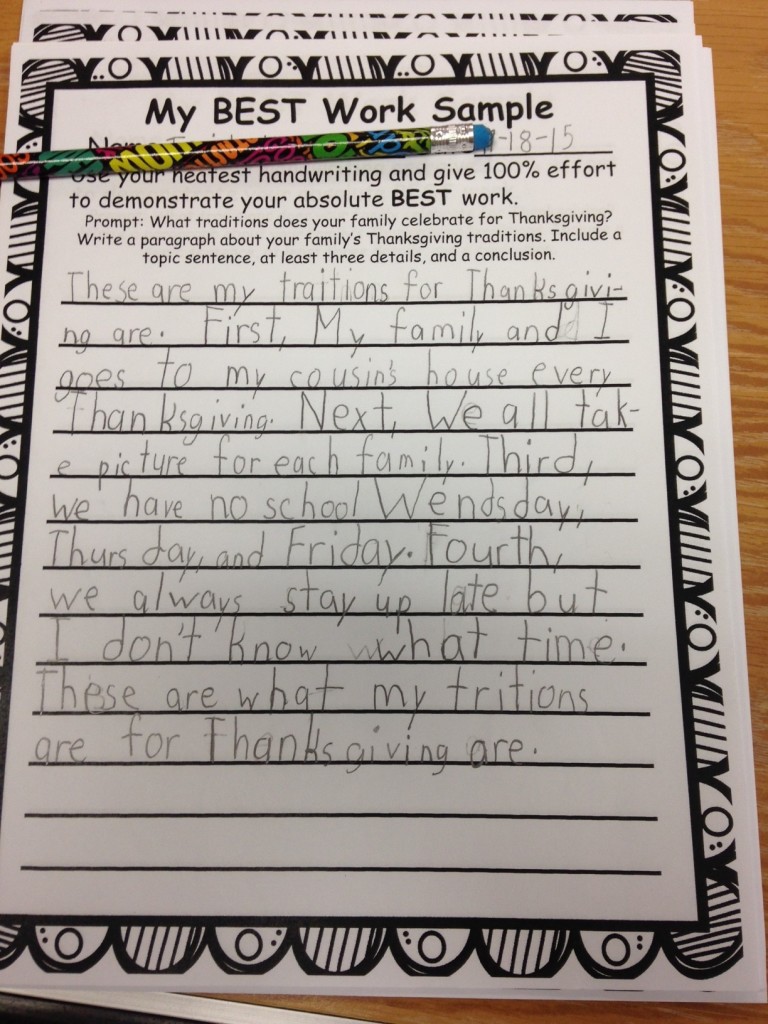 My BEST Work Sample
-18-15
your neatest handwriting and give 100% effort
to demonstrate your absolute BEST work.
Prompt: What traditions does your family celebrate for Thanksgiving?
Write a paragraph about your family's Thanksgiving traditions. Include a
topic sentence, at least three details, and a conclusion.
These are my traitions for Thanksgivi-
ng are. First, My family and I
goes to my cousin's house every
Thanksgiving. Next, We all tak-
e picture for each family. Third,
we have no school Wendsday,
Thursday, and Friday. Fourth,
we always stay up late but
I don't know what time.
These are what my tritions
are for Thanksgiving are.